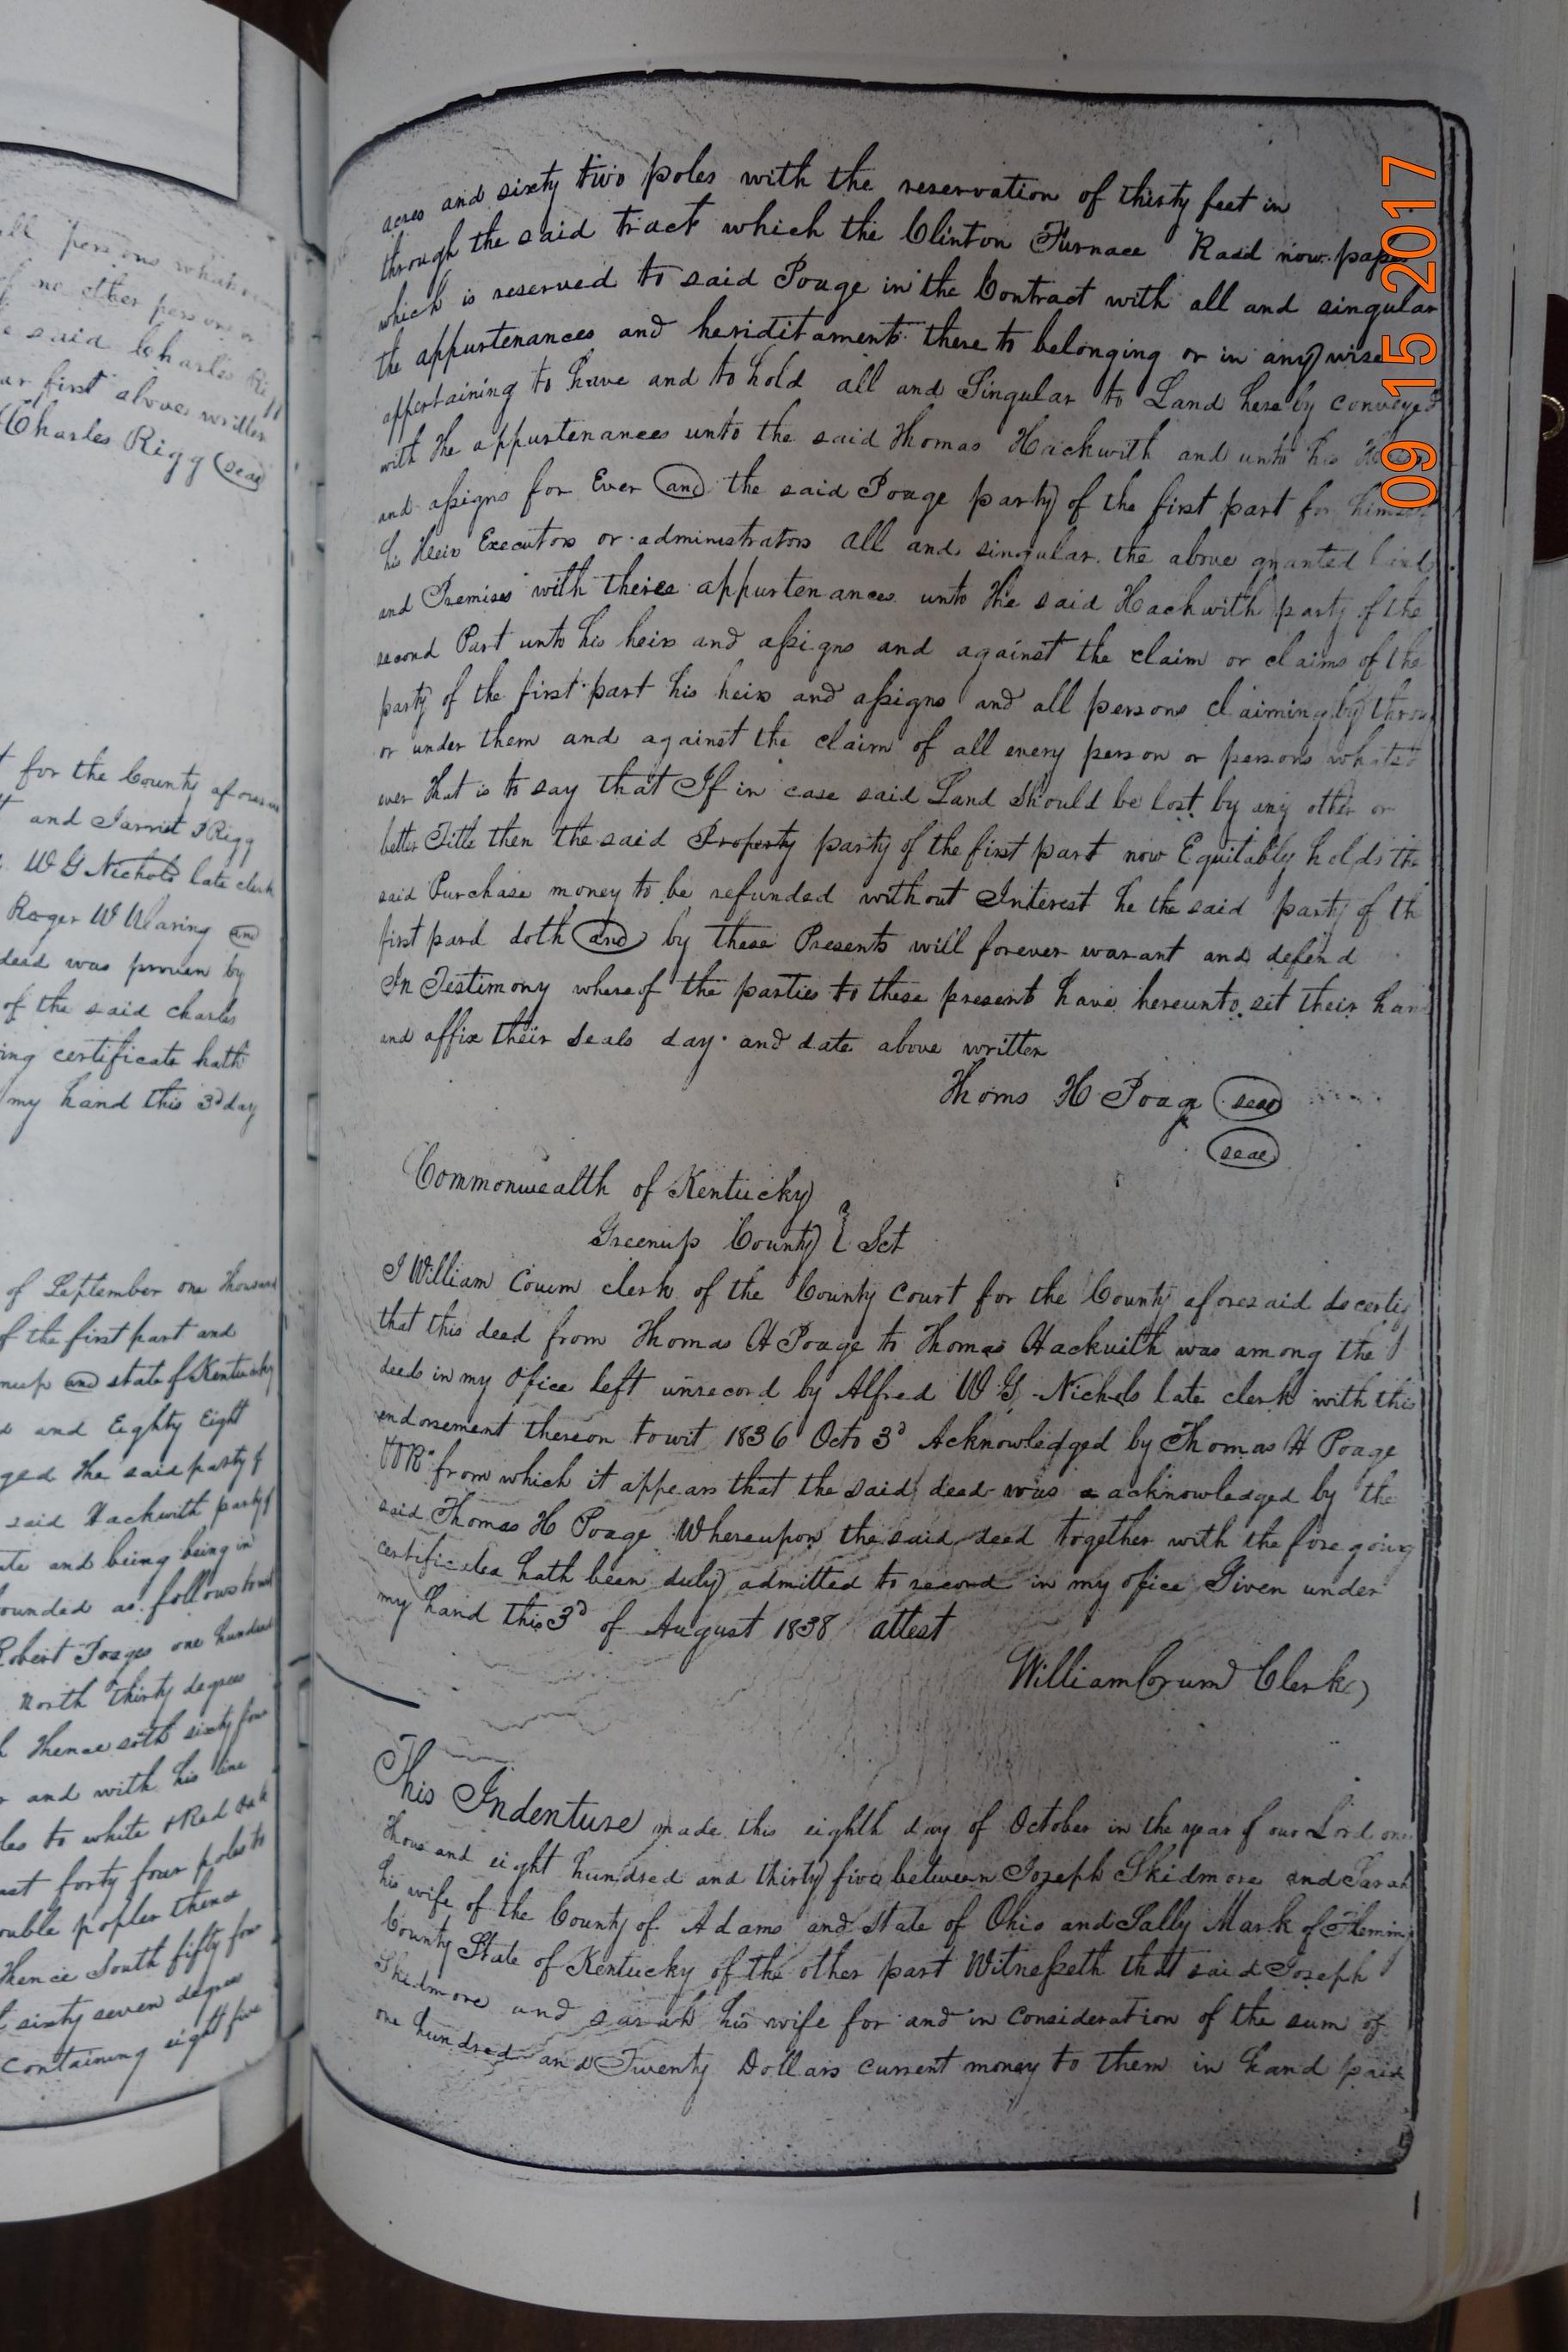 ll persons whatsoever
f no other persons or
e said Charles Rigg
ar first above written
Charles Rigg (seal)
t for the County aforesaid
t and Jarrit Rigg
W G Nichols late clerk
Roger W Waring and
deed was proven by
of the said charles
ing certificate hath
my hand this 3d day
of September one thousand
f the first part and
nup and state of Kentucky
s and Eighty Eight
ged the said party of
said Hackwith party of
ate and being being in
ounded as follows to wit
Robert Poages one hundred
North thirty degrees
Thence soth sixty four
r and with his line
les to white & Red Oak
ast forty four poles to
ouble popler thence
Thence South fifty four
t sixty seven degree
containing eight five
acres and sixty two poles with the reservation of thirty feet in
through the said tract which the Clinton Furnace Raod now papes
which is reserved to said Poage in the Contract with all and singular
the appurtenances and heriditaments there to belonging or in any wise
appertaining to have and to hold all and Singular to Land here by conveyed
with the appurtenances unto the said Thomas Hackwith and unto his
and assigns for Ever and the said Poage party of the first part for himself
his Heirs Executors or administrators all and singular the above granted land
and Premises with theire appurtenances unto the said Hackwith party of the
second Part unto his heirs and assigns and against the claim or claims of the
party of the first part his heirs and assigns and all persons claiming by throu
or under them and against the claim of all every person or persons whatso
ever that is to say that If in case said Land Should be lost by any other or
better Title then the said Property party of the first part now Equitably holds the
said Purchase money to be refunded without Interest he the said party of th
first pard doth and by these Presents will forever warant and defend
In Testimony whereof the parties to these present have hereunto set their hand
and affix their Seals day and date above written
Thoms H Poage (seal)
(seal)
Commonwealth of Kentucky
Greenup County } Sct
I William Corum clerk of the County Court for the County aforesaid do certify
that this deed from Thomas H Poage to Thomas Hackwith was among the
deeds in my office left unrecord by Alfred W G Nichols late clerk with this
endorsement thereon towit 1836 Octo 3d Acknowledged by Thomas H Poage
from which it appears that the said deed was a acknowledged by the
said Thomas H Poage Whereupon the said deed together with the fore going
certificates hath been duly admitted to record in my office Given under
my hand this 3d of August 1838 attest
William Corum Clerk
This Indenture made this eighth day of October in the year of our Lord one
thousand eight hundred and thirty five between Joseph Skidmore and Sarah
his wife of the County of Adams and State of Ohio and Sally Mark of Fleming
County State of Kentucky of the other part Witnesseth that said Joseph
Skidmore and sarah his wife for and in consideration of the sum of
one hundred and Twenty Dollars current money to them in hand paid
09 15 2017